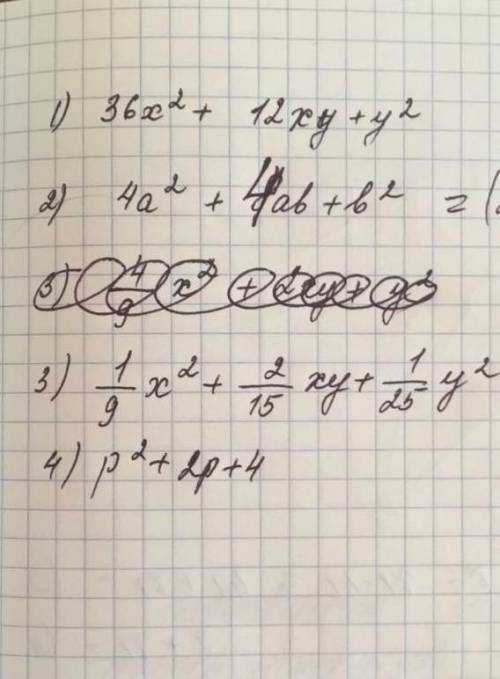 1) 36x² + 12xy + y²
2) 4a² + 4ab + b² = (
3) 4/9 x² + 2xy + y²
3) 1/9 x² + 2/15 xy + 1/25 y²
4) p² + 2p + 4